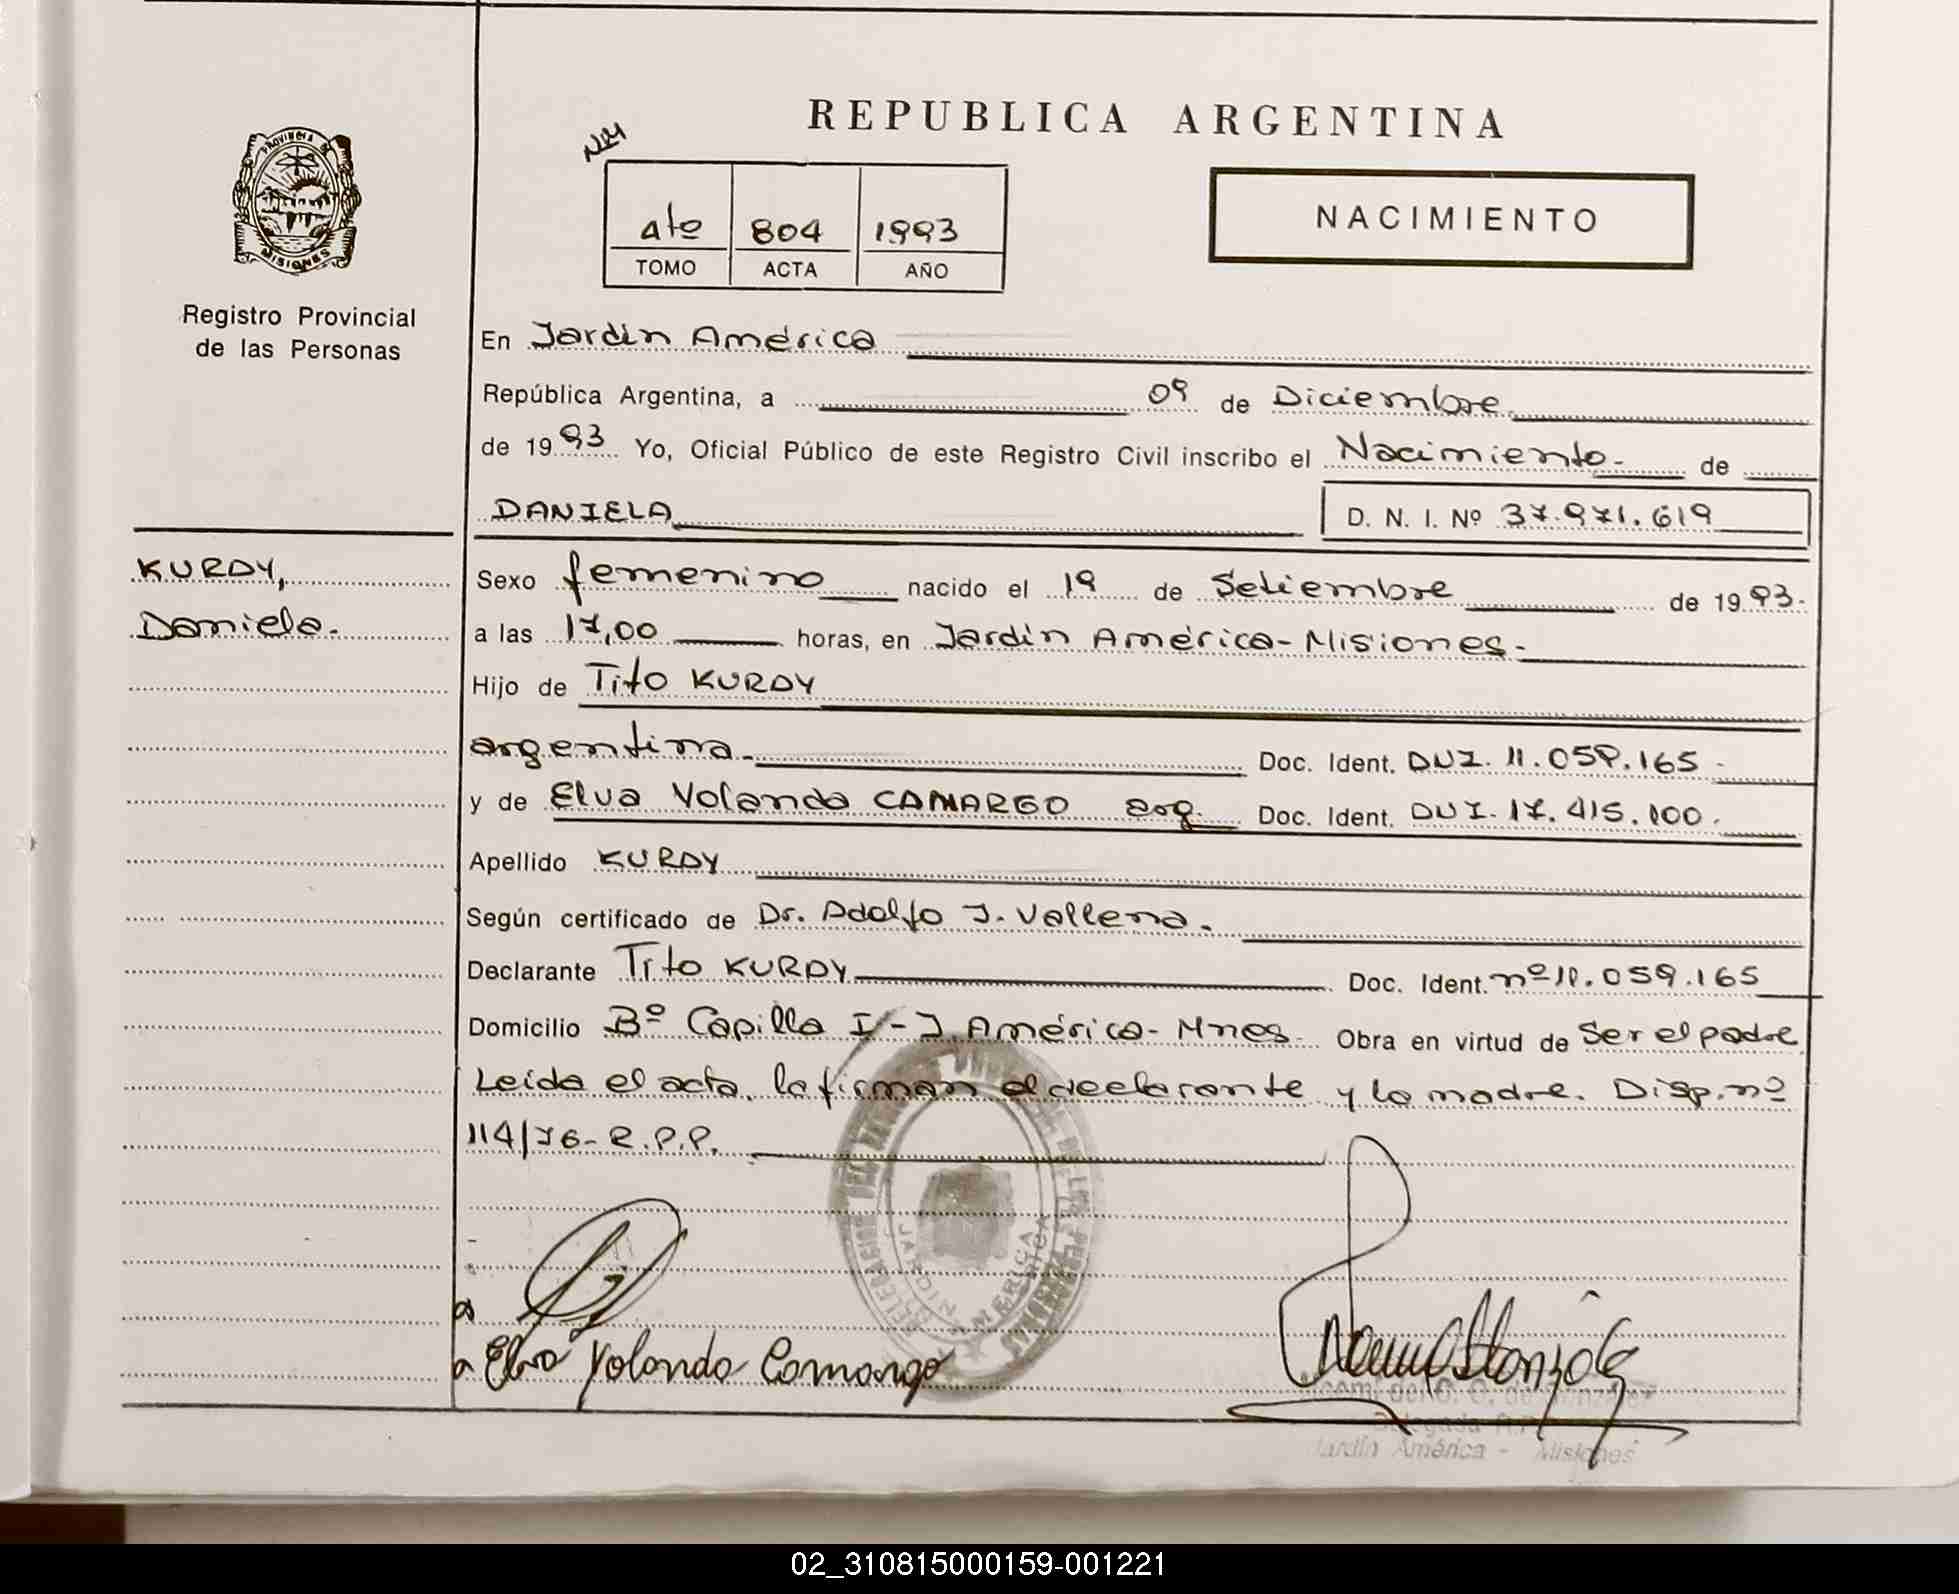 REPUBLICA ARGENTINA
PROVINCIA DE
MISIONES
Registro Provincial
de las Personas
ate 804 1993
TOMO ACTA AÑO
NACIMIENTO
En Jardín América
República Argentina, a 09 de Diciembre
de 1993 Yo, Oficial Público de este Registro Civil inscribo el Nacimiento- de
DANIELA D. N. I. Nº 37.971.619
KURDY,
Daniela.
Sexo femenino nacido el 19 de Setiembre de 1993.
a las 17,00 horas, en Jardín América-Misiones.
Hijo de Tito KURDY
argentina. Doc. Ident. DNI. 11.059.165
y de Elva Yolanda CAMARGO arg. Doc. Ident. DNI. 17.415.100.
Apellido KURDY
Según certificado de Dr. Adolfo J. Vallena.
Declarante Tito KURDY Doc. Ident. nº 11.059.165
Domicilio Bº Capilla I-J. América-Mnes. Obra en virtud de Ser el padre
Leída el acta, la firman el declarante y la madre. Disp. nº
114/76-R.P.P.
JARDIN AMERICA
Elva Yolanda Camargo
Jardín América - Misiones
02_310815000159-001221